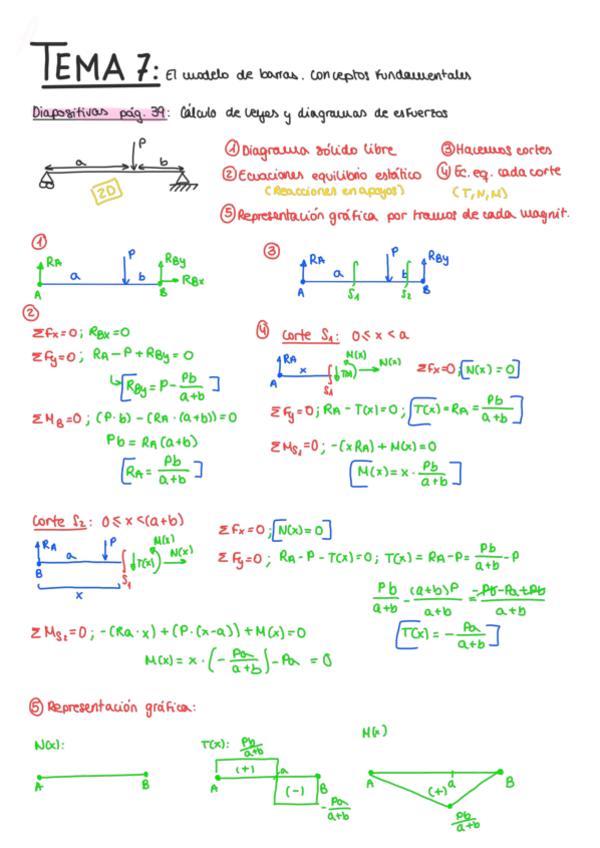 TEMA 7: El modelo de barras. Conceptos fundamentales
Diapositivas pág. 39: Cálculo de leyes y diagramas de esfuerzos
P
a b
2D
① Diagrama sólido libre
② Ecuaciones equilibrio estático
(Reacciones en apoyos)
③ Hacemos cortes
④ Ec. eq. cada corte
(T, N, M)
⑤ Representación gráfica por tramos de cada magnit.
①
RA P RBy
a b RBx
A B
③
RA P RBy
a b
A S1 S2 B
②
Σfx=0; RBx=0
Σfy=0; RA-P+RBy=0
[RBy=P-Pb/(a+b)]
ΣMB=0; (P·b)-(RA·(a+b))=0
Pb=RA(a+b)
[RA=Pb/(a+b)]
④ Corte S1: 0≤x<a
RA x T(x) M(x) N(x)
A S1
Σfx=0; [N(x)=0]
ΣFy=0; RA-T(x)=0; [T(x)=RA=Pb/(a+b)]
ΣMS1=0; -(xRA)+M(x)=0
[M(x)=x·Pb/(a+b)]
Corte S2: 0≤x<(a+b)
RA a P T(x) M(x) N(x)
B S1
x
Σfx=0; [N(x)=0]
ΣFy=0; RA-P-T(x)=0; T(x)=RA-P=Pb/(a+b)-P
Pb/(a+b)-(a+b)P/(a+b)=-Pb-Pa+Pb/(a+b)
[T(x)=-Pa/(a+b)]
ΣMS2=0; -(Ra·x)+(P·(x-a))+M(x)=0
M(x)=x·(-Pa/(a+b))-Pa=0
⑤ Representación gráfica:
N(x):
A B
T(x): Pb/(a+b)
(+) a
A (-) B
-Pa/(a+b)
M(x)
A a B
(+)
Pb/(a+b)